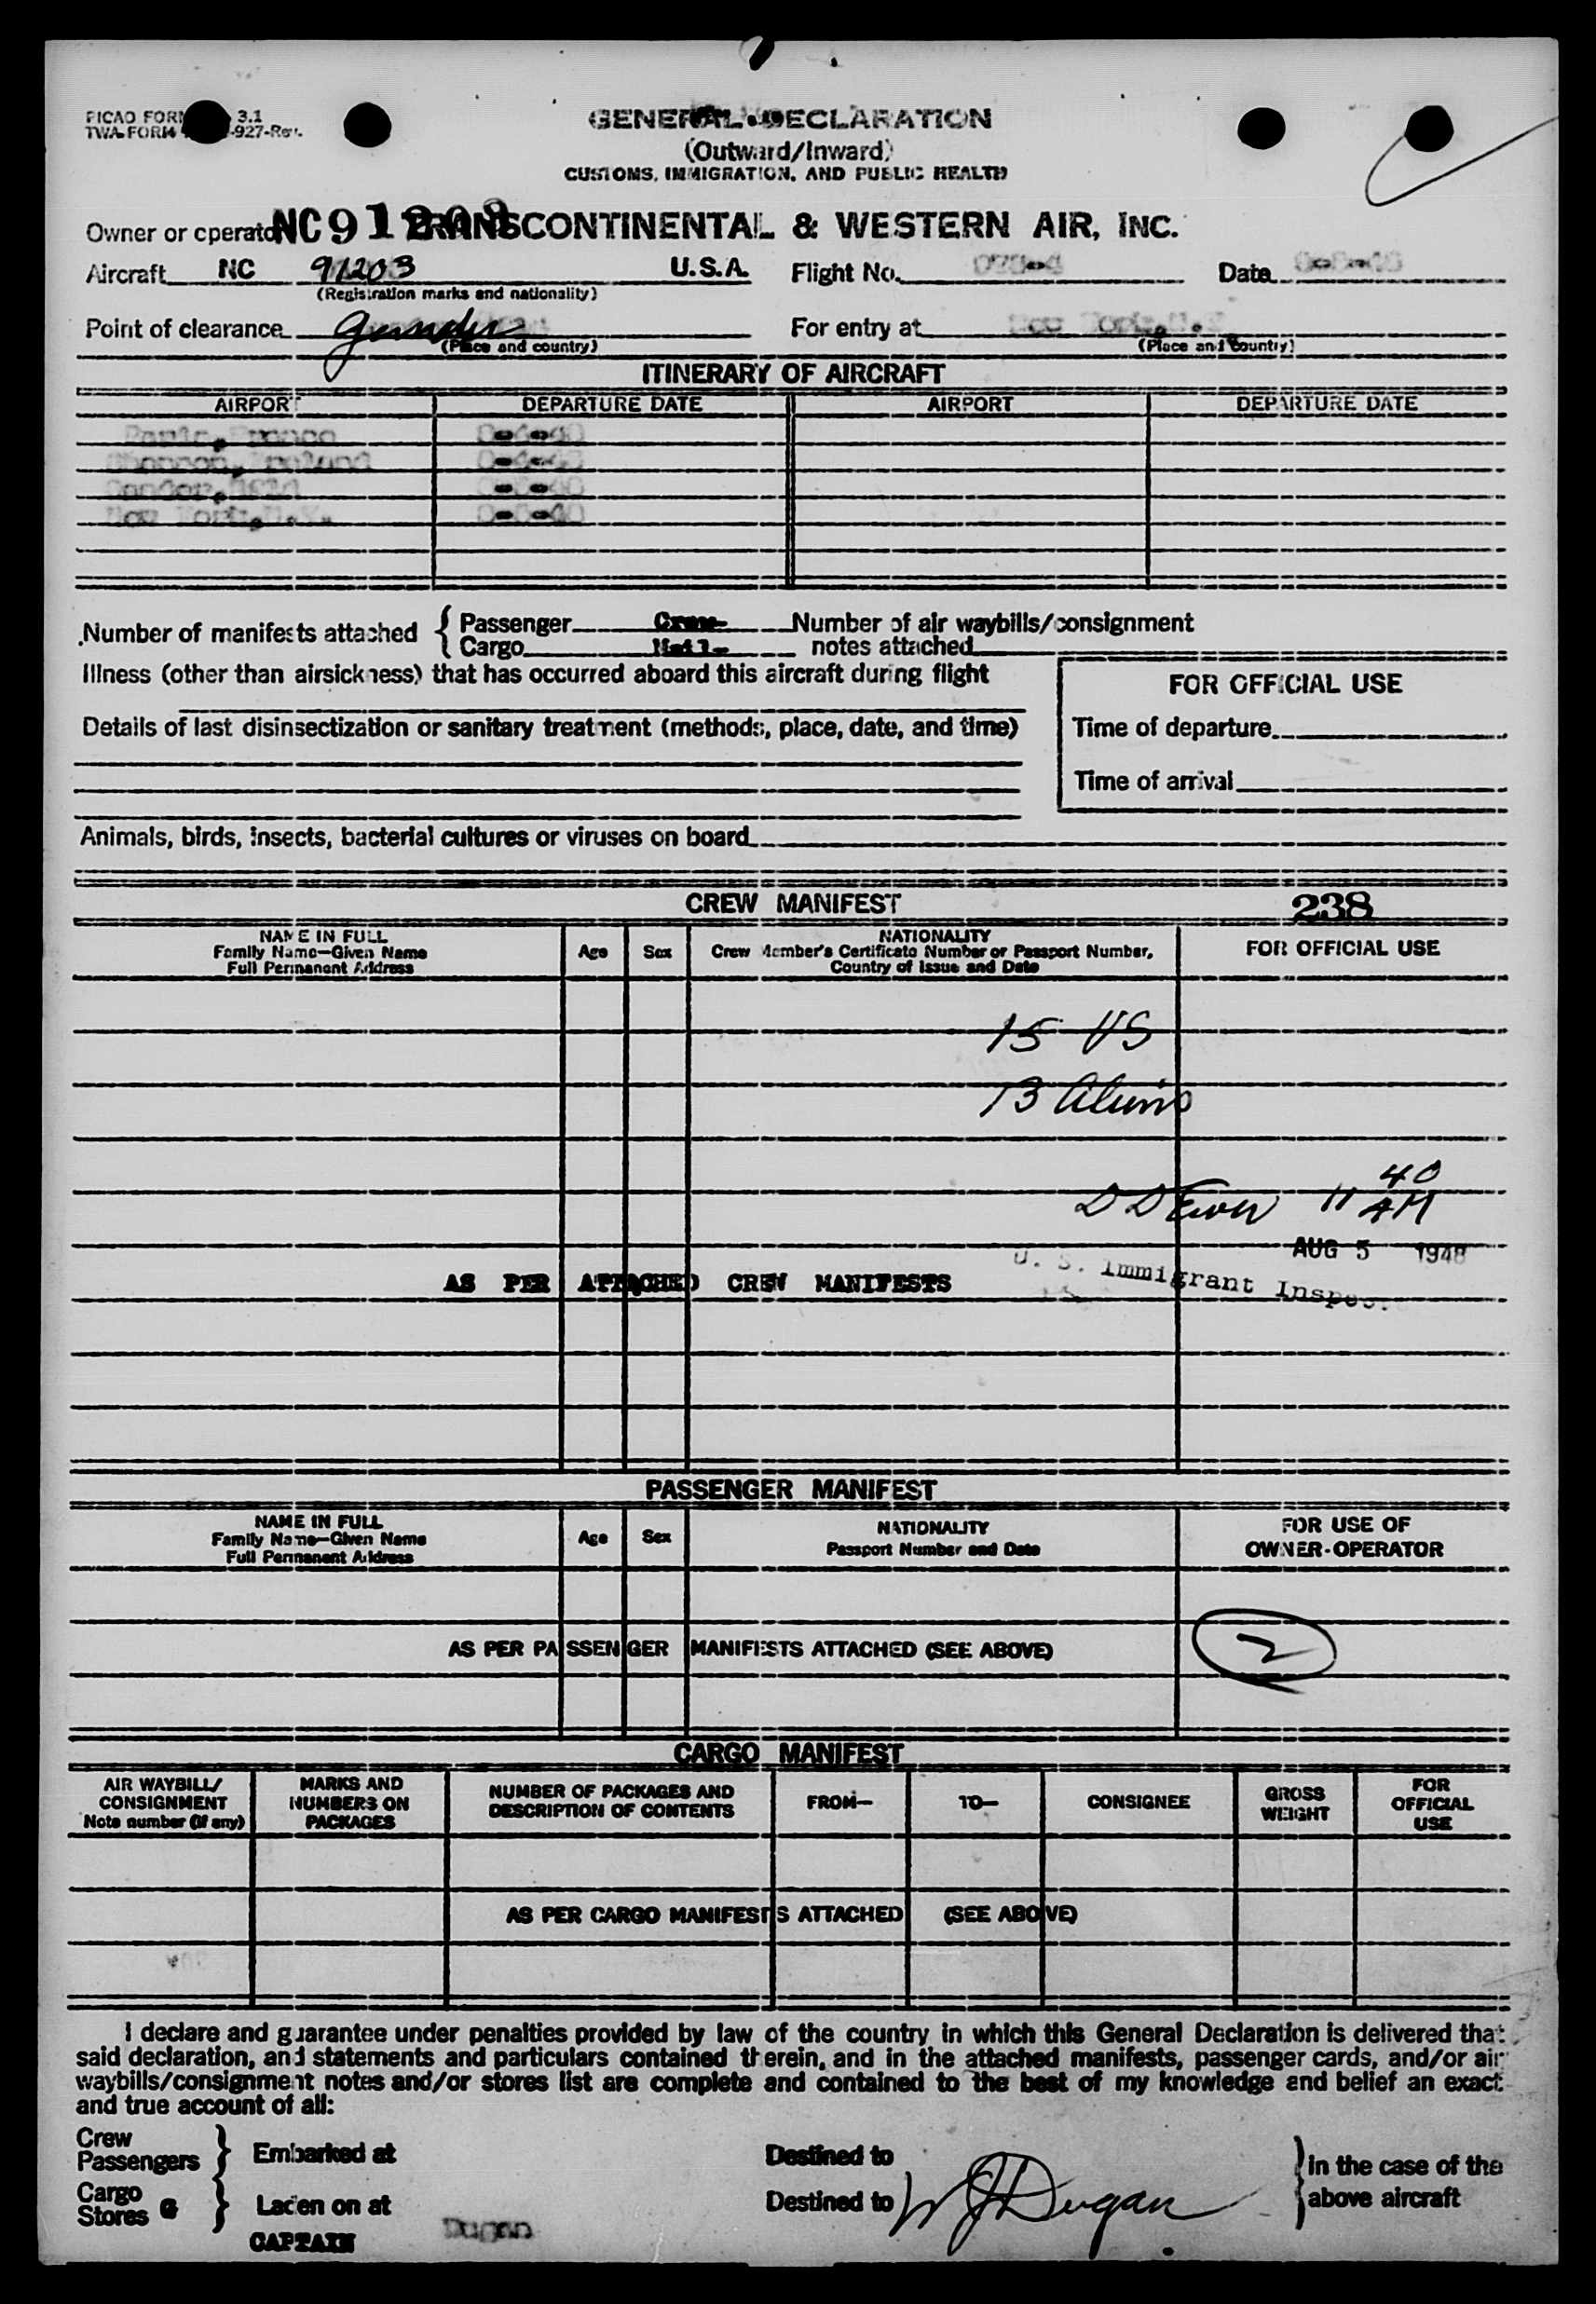 PICAO FORM 3.1
TWA FORM -927-Rev.
GENERAL DECLARATION
(Outward/Inward)
CUSTOMS, IMMIGRATION, AND PUBLIC HEALTH
Owner or operator NC91203 TRANSCONTINENTAL & WESTERN AIR, INC.
Aircraft NC 91203 U.S.A. Flight No. Date
(Registration marks and nationality)
Point of clearance Gander For entry at New York, N.Y.
(Place and country) (Place and country)
ITINERARY OF AIRCRAFT
AIRPORT DEPARTURE DATE AIRPORT DEPARTURE DATE
Paris, France
Shannon, Ireland
Gander, Nfld
New York, N.Y.
Number of manifests attached { Passenger Crew- Number of air waybills/consignment
Cargo Mail- notes attached
Illness (other than airsickness) that has occurred aboard this aircraft during flight
FOR OFFICIAL USE
Details of last disinsectization or sanitary treatment (methods, place, date, and time)
Time of departure
Time of arrival
Animals, birds, insects, bacterial cultures or viruses on board
CREW MANIFEST 238
NAME IN FULL
Family Name—Given Name
Full Permanent Address
Age Sex
NATIONALITY
Crew Member's Certificate Number or Passport Number,
Country of Issue and Date
FOR OFFICIAL USE
15 US
13 Aliens
11 40 AM
AUG 5 1948
U. S. Immigrant Inspec
AS PER ATTACHED CREW MANIFESTS
PASSENGER MANIFEST
NAME IN FULL
Family Name—Given Name
Full Permanent Address
Age Sex
NATIONALITY
Passport Number and Date
FOR USE OF
OWNER-OPERATOR
AS PER PASSENGER MANIFESTS ATTACHED (SEE ABOVE) 2
CARGO MANIFEST
AIR WAYBILL/
CONSIGNMENT
Note number (if any)
MARKS AND
NUMBERS ON
PACKAGES
NUMBER OF PACKAGES AND
DESCRIPTION OF CONTENTS
FROM— TO— CONSIGNEE
GROSS
WEIGHT
FOR
OFFICIAL
USE
AS PER CARGO MANIFESTS ATTACHED (SEE ABOVE)
I declare and guarantee under penalties provided by law of the country in which this General Declaration is delivered that
said declaration, and statements and particulars contained therein, and in the attached manifests, passenger cards, and/or air
waybills/consignment notes and/or stores list are complete and contained to the best of my knowledge and belief an exact
and true account of all:
Crew
Passengers } Embarked at Destined to } in the case of the
Cargo
Stores G } Laden on at Destined to above aircraft
W J Dugan
CAPTAIN Dugan